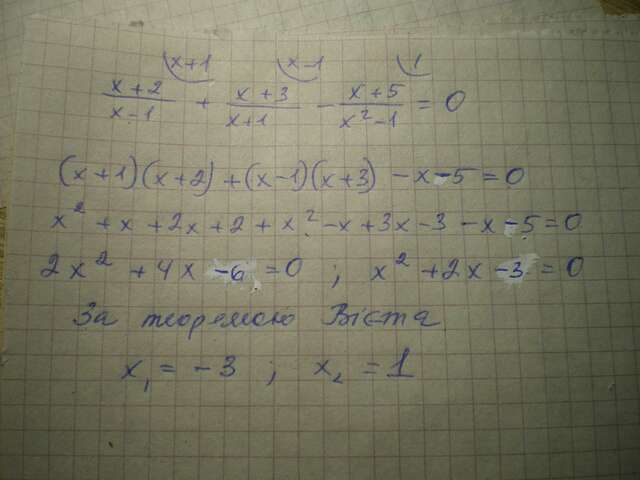 x+1 x-1 1
x+2/x-1 + x+3/x+1 - x+5/x²-1 = 0
(x+1)(x+2)+(x-1)(x+3)-x-5=0
x²+x+2x+2+x²-x+3x-3-x-5=0
2x²+4x-6=0 ; x²+2x-3=0
За теоремою Вієта
x₁=-3 ; x₂=1